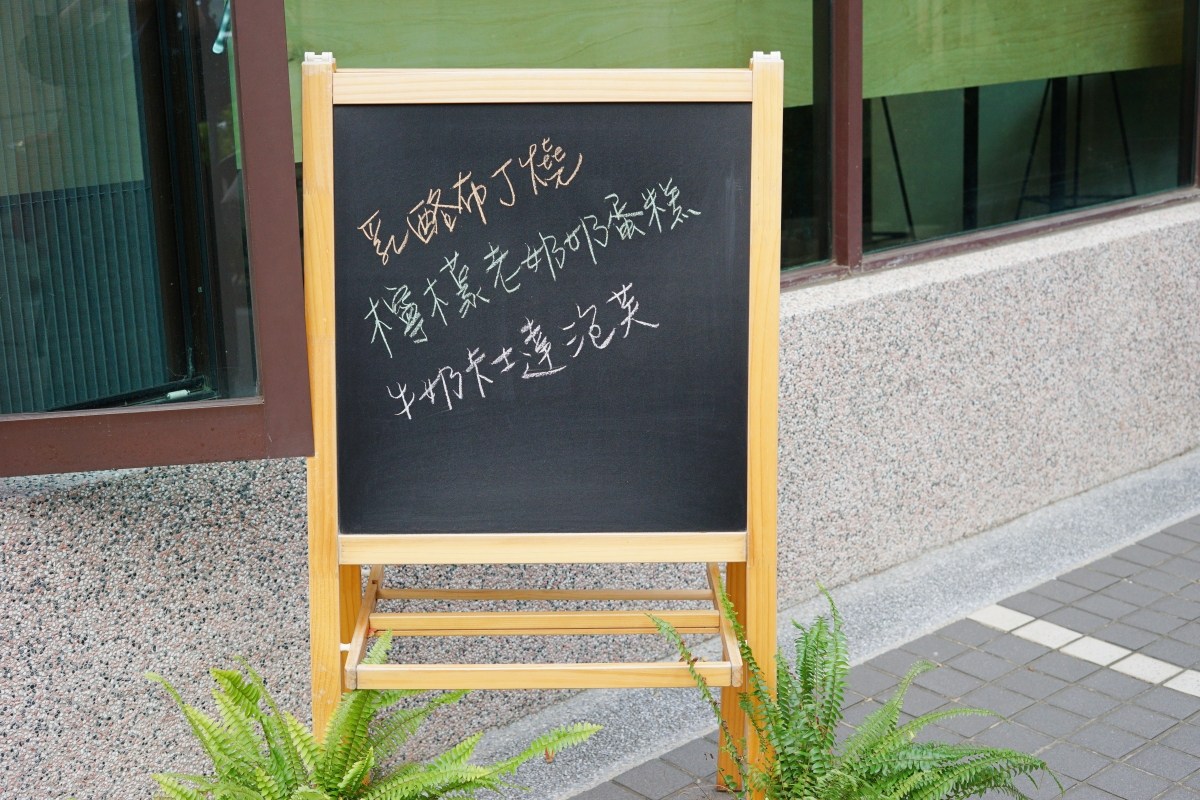 乳酪布丁燒
檸檬老奶奶蛋糕
牛奶卡士達泡芙